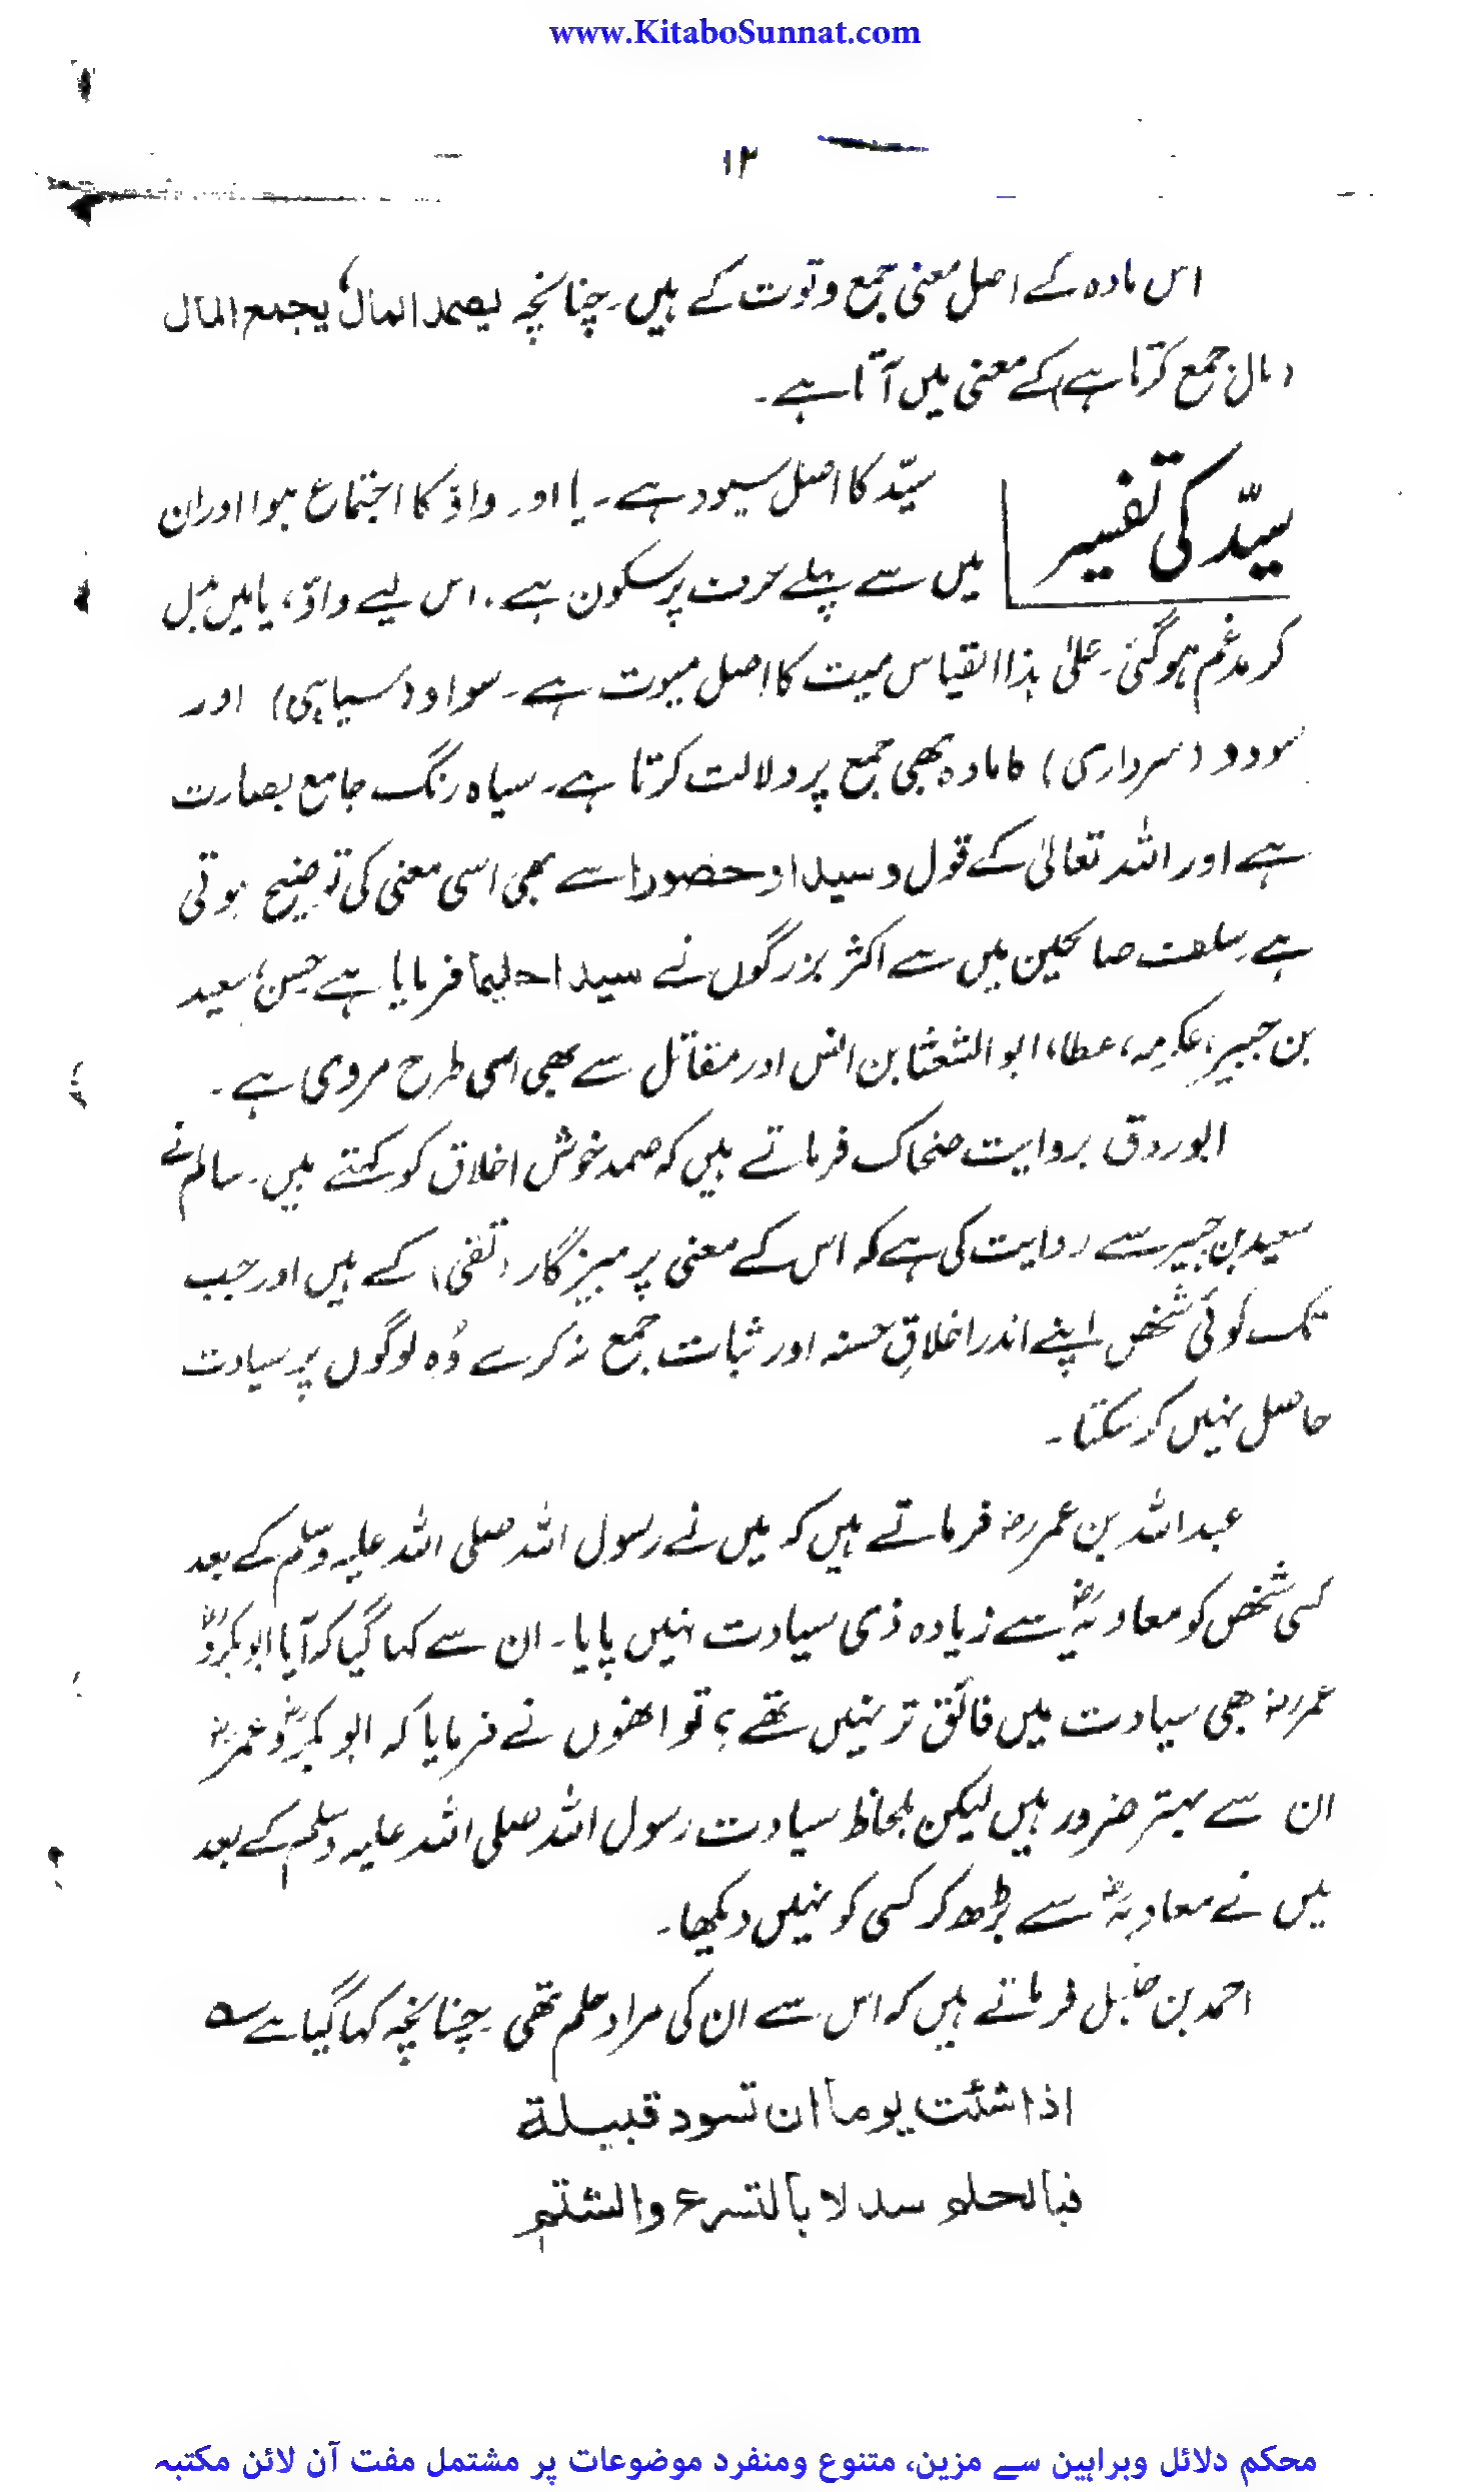 www.KitaboSunnat.com
۱۳
اس مادہ کے اصل معنی جمع وقوت کے ہیں۔ چنانچہ یصمد المال، یجمع المال
(مال جمع کرتا ہے) کے معنی میں آتا ہے۔
سیّد کی تفسیر
سیّد کا اصل سیود ہے۔ یا اور واؤ کا اجتماع ہوا اور ان
میں سے پہلے حرف پر سکون ہے۔ اس لیے واؤ، یا میں مبدل
کر مدغم ہوگئی۔ علیٰ ہذا القیاس میت کا اصل میوت ہے۔ سواد (سیاہی) اور
سودد (سرداری) کا مادہ بھی جمع پر دلالت کرتا ہے۔ سیاہ رنگ جامع بصارت
ہے اور اللہ تعالیٰ کے قول وسیدا وحصورا سے بھی اسی معنی کی توضیح ہوتی
ہے سلف صالحین میں سے اکثر بزرگوں نے سیدا حلیما فرمایا ہے حسن، سعید
بن جبیر، عکرمہ، عطا، ابو الشعثا بن انس اور مقاتل سے بھی اسی طرح مروی ہے۔
ابوروق بروایت ضحاک فرماتے ہیں کہ صمد خوش اخلاق کو کہتے ہیں۔ سالم نے
سعید بن جبیر سے روایت کی ہے کہ اس کے معنی پرہیزگار (تقی) کے ہیں اور جب
تک کوئی شخص اپنے اندر اخلاقِ حسنہ اور ثبات جمع نہ کرے وُہ لوگوں پر سیادت
حاصل نہیں کر سکتا۔
عبداللہ بن عمررضہ فرماتے ہیں کہ میں نے رسول اللہ صلی اللہ علیہ وسلم کے بعد
کسی شخص کو معاویہؓ سے زیادہ ذی سیادت نہیں پایا۔ ان سے کہا گیا کہ آیا ابوبکرؓ و
عمررضہ بھی سیادت میں فائق تر نہیں تھے؟ تو انھوں نے فرمایا کہ ابوبکرؓ و عمررضہ
ان سے بہتر ضرور ہیں لیکن بلحاظ سیادت رسول اللہ صلی اللہ علیہ وسلم کے بعد
میں نے معاویہؓ سے بڑھ کر کسی کو نہیں دیکھا۔
احمد بن حنبل فرماتے ہیں کہ اس سے ان کی مراد حلم تھی۔ چنانچہ کہا گیا ہے ؎
اذا شئت یوما ان تسود قبیلة
فبالحلم سد لا بالتسرع والشتم
محکم دلائل وبراہین سے مزین، متنوع ومنفرد موضوعات پر مشتمل مفت آن لائن مکتبہ